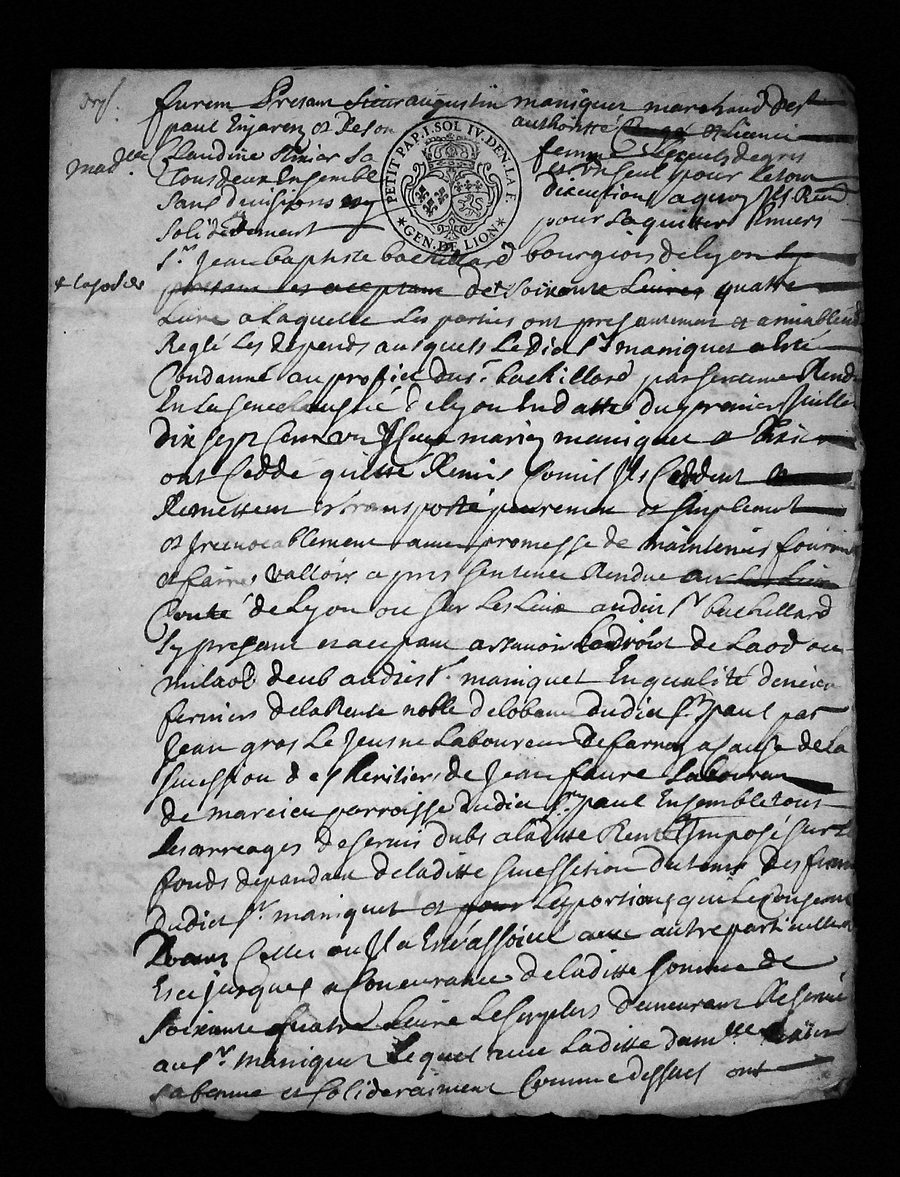 furent Presant Sieur augustin maniquet marchand de st
paul En Jarez et de son authoritté
mad.lle Claudine femme Lesquels de gré
Tous deux Ensemble et un seul pour Le tout
PETIT PAP. I. SOL IV. DEN. LA F.
★ GEN. DE LION ★
sans division ny discution
solidairement pour Laquitter Envers
Sr Jean baptiste bachillard bourgeois de lyon
de soixante Livres quatre
Livre a Laquelle Les parties ont presentement et amiablem
Reglé Les depends ausquels Ledict Sr maniquet a Esté
Condanné au proffict du Sr bachillard par sentence Rendue
En La senechaussé de lyon En datte du premier Juillet
Dix sept Cent maniquet et
ont Ceddé quitté Remis Comme Ils Ceddent
Remettent et transporté purement et simplement
et Irrevocablement avec promesse de maintenir fournir
et faire valloir apres sentence Rendue
Comté de Lyon ou sur Les Lieux audict Sr bachillard
Ic y present et acceptant assavoir Le droict de Laod ou
milaod deub audict Sr maniquet En qualité de
fermier de la Rente noble de dudict St paul par
Jean gros Le Jeusne Laboureur De farnay a cause de La
sucession des Heritiers de Jean faure Laboureur
de parroisse dudict St paul Ensemble tous
Les arreages de servis dubs a laditte Rente Imposé sur Les
fonds depandant de laditte sucession du temps des fermes
Dudict Sr maniquet et Les portions qui Le Conserne
Dans Celles ou Il a Esté assoicié avec autre particullier
Et ce jusques a Concurance de laditte somme de
soixante quatre Livre Le surplus demeurant Reservé
au Sr maniquet Lequel avec Laditte dam.lle
sa femme et sollideraiment Comme dessus ont